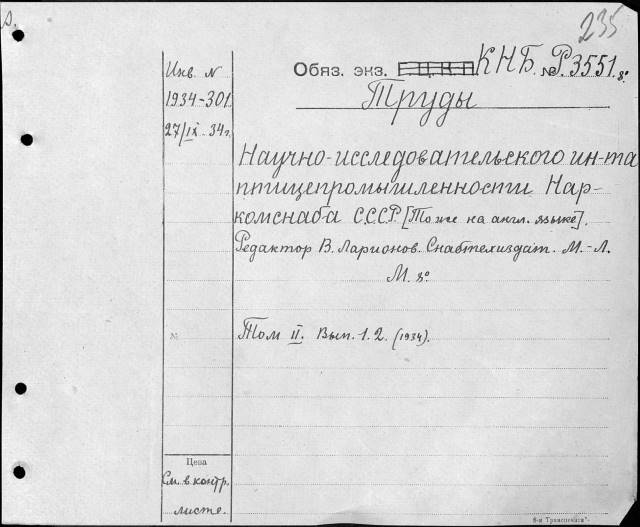 235
Инв. N
1934-301
27/IX-34г.
Обяз. экз. Ц.К.П КНБ. № Р.3551.8°
Труды
Научно-исследовательского ин-та
птицепромышленности Нар-
комснаба С.С.С.Р. [То же на англ. языке].
Редактор В. Ларионов. Снабтехиздат. М.-Л.
М. 8°
№
Том II. Вып. 1.2. (1934).
Цена
См. в контр.
листе.